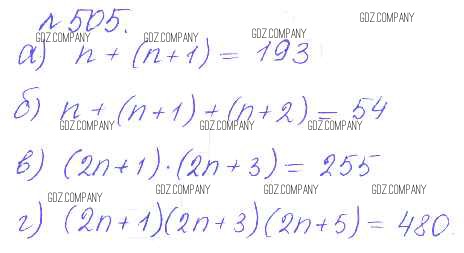 №505.
GDZ.COMPANY
GDZ.COMPANY GDZ.COMPANY GDZ.COMPANY
а) n + (n+1) = 193
б) n + (n+1) + (n+2) = 54
GDZ.COMPANY GDZ.COMPANY GDZ.COMPANY
в) (2n+1)·(2n+3) = 255
GDZ.COMPANY GDZ.COMPANY GDZ.COMPANY GDZ.COMPANY
г) (2n+1)(2n+3)(2n+5) = 480.